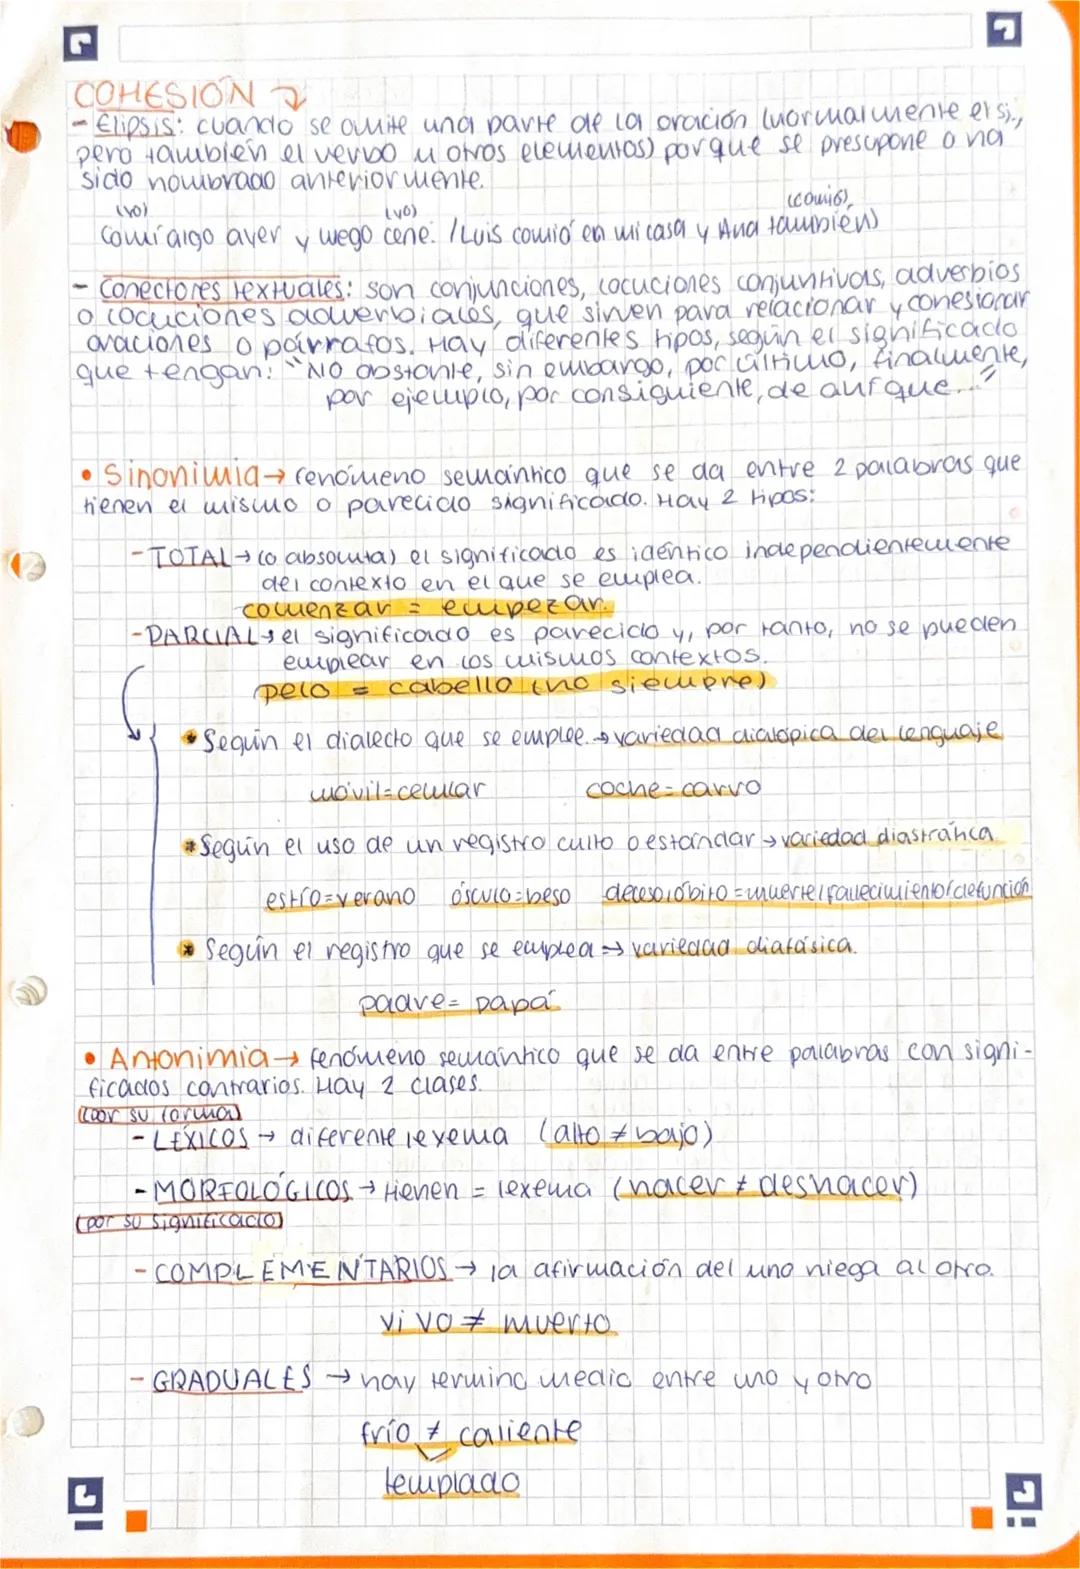 COHESIÓN
- Elipsis: cuando se omite una parte de la oración (normalmente el sj.,
pero también el verbo u otros elementos) porque se presupone o ha
sido nombrado anteriormente.
(yo) (yo) (comió)
Comí algo ayer y luego cené. / Luis comió en mi casa y Ana también)
- Conectores textuales: son conjunciones, locuciones conjuntivas, adverbios
o locuciones adverbiales, que sirven para relacionar y cohesionar
oraciones o párrafos. Hay diferentes tipos, según el significado
que tengan: "No obstante, sin embargo, por último, finalmente,
por ejemplo, por consiguiente, de ahí que..."
• Sinonimia → fenómeno semántico que se da entre 2 palabras que
tienen el mismo o parecido significado. Hay 2 tipos:
- TOTAL → (o absoluta) el significado es idéntico independientemente
del contexto en el que se emplea.
comenzar = empezar.
- PARCIAL → el significado es parecido y, por tanto, no se pueden
emplear en los mismos contextos.
pelo = cabello (no siempre)
* Según el dialecto que se emplee. → variedad diatópica del lenguaje
móvil=celular coche=carro
* Según el uso de un registro culto o estándar → variedad diastrática
estío=verano ósculo=beso deceso/óbito=muerte/fallecimiento/defunción
* Según el registro que se emplea → variedad diafásica.
padre= papá
• Antonimia → fenómeno semántico que se da entre palabras con signi-
ficados contrarios. Hay 2 clases.
(por su forma)
- LÉXICOS → diferente lexema (alto ≠ bajo)
- MORFOLÓGICOS → tienen = lexema (hacer ≠ deshacer)
(por su significado)
- COMPLEMENTARIOS → la afirmación del uno niega al otro.
vivo ≠ muerto
- GRADUALES → hay termino medio entre uno y otro
frío ≠ caliente
templado